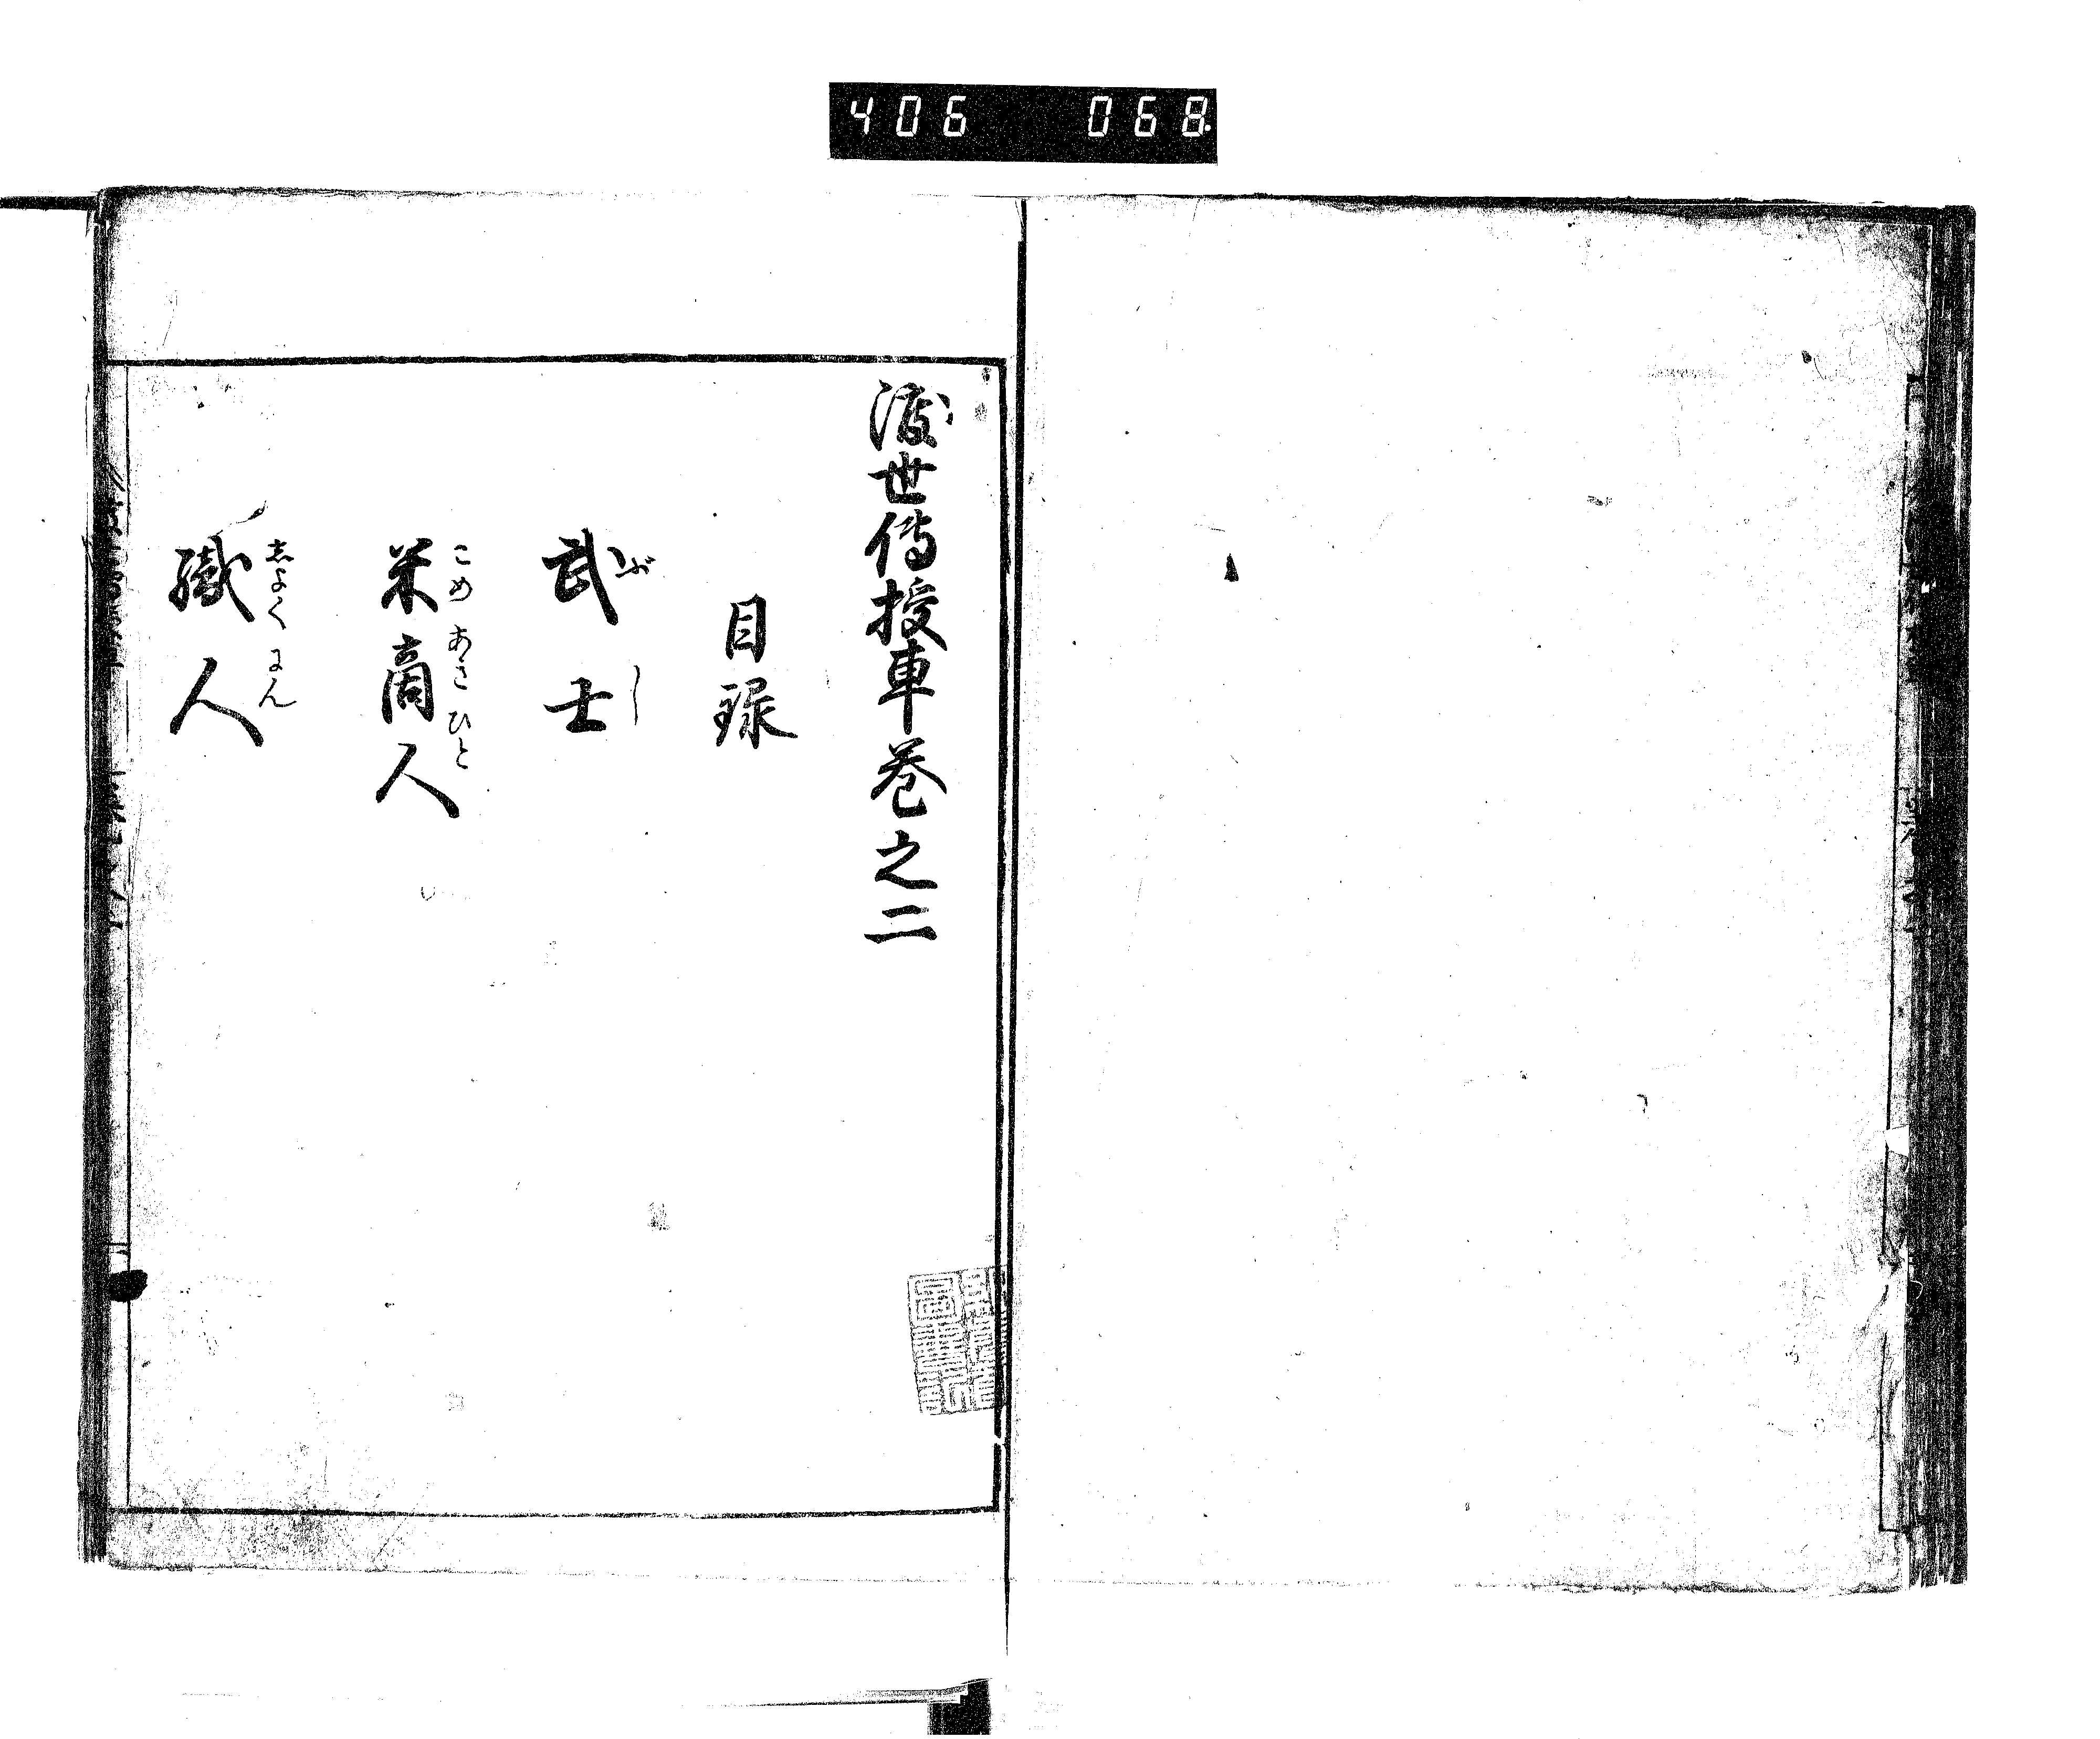 406 068
渡世傳授車巻之二
目録
武士
ぶし
米商人
こめあきひと
職人
志よくにん